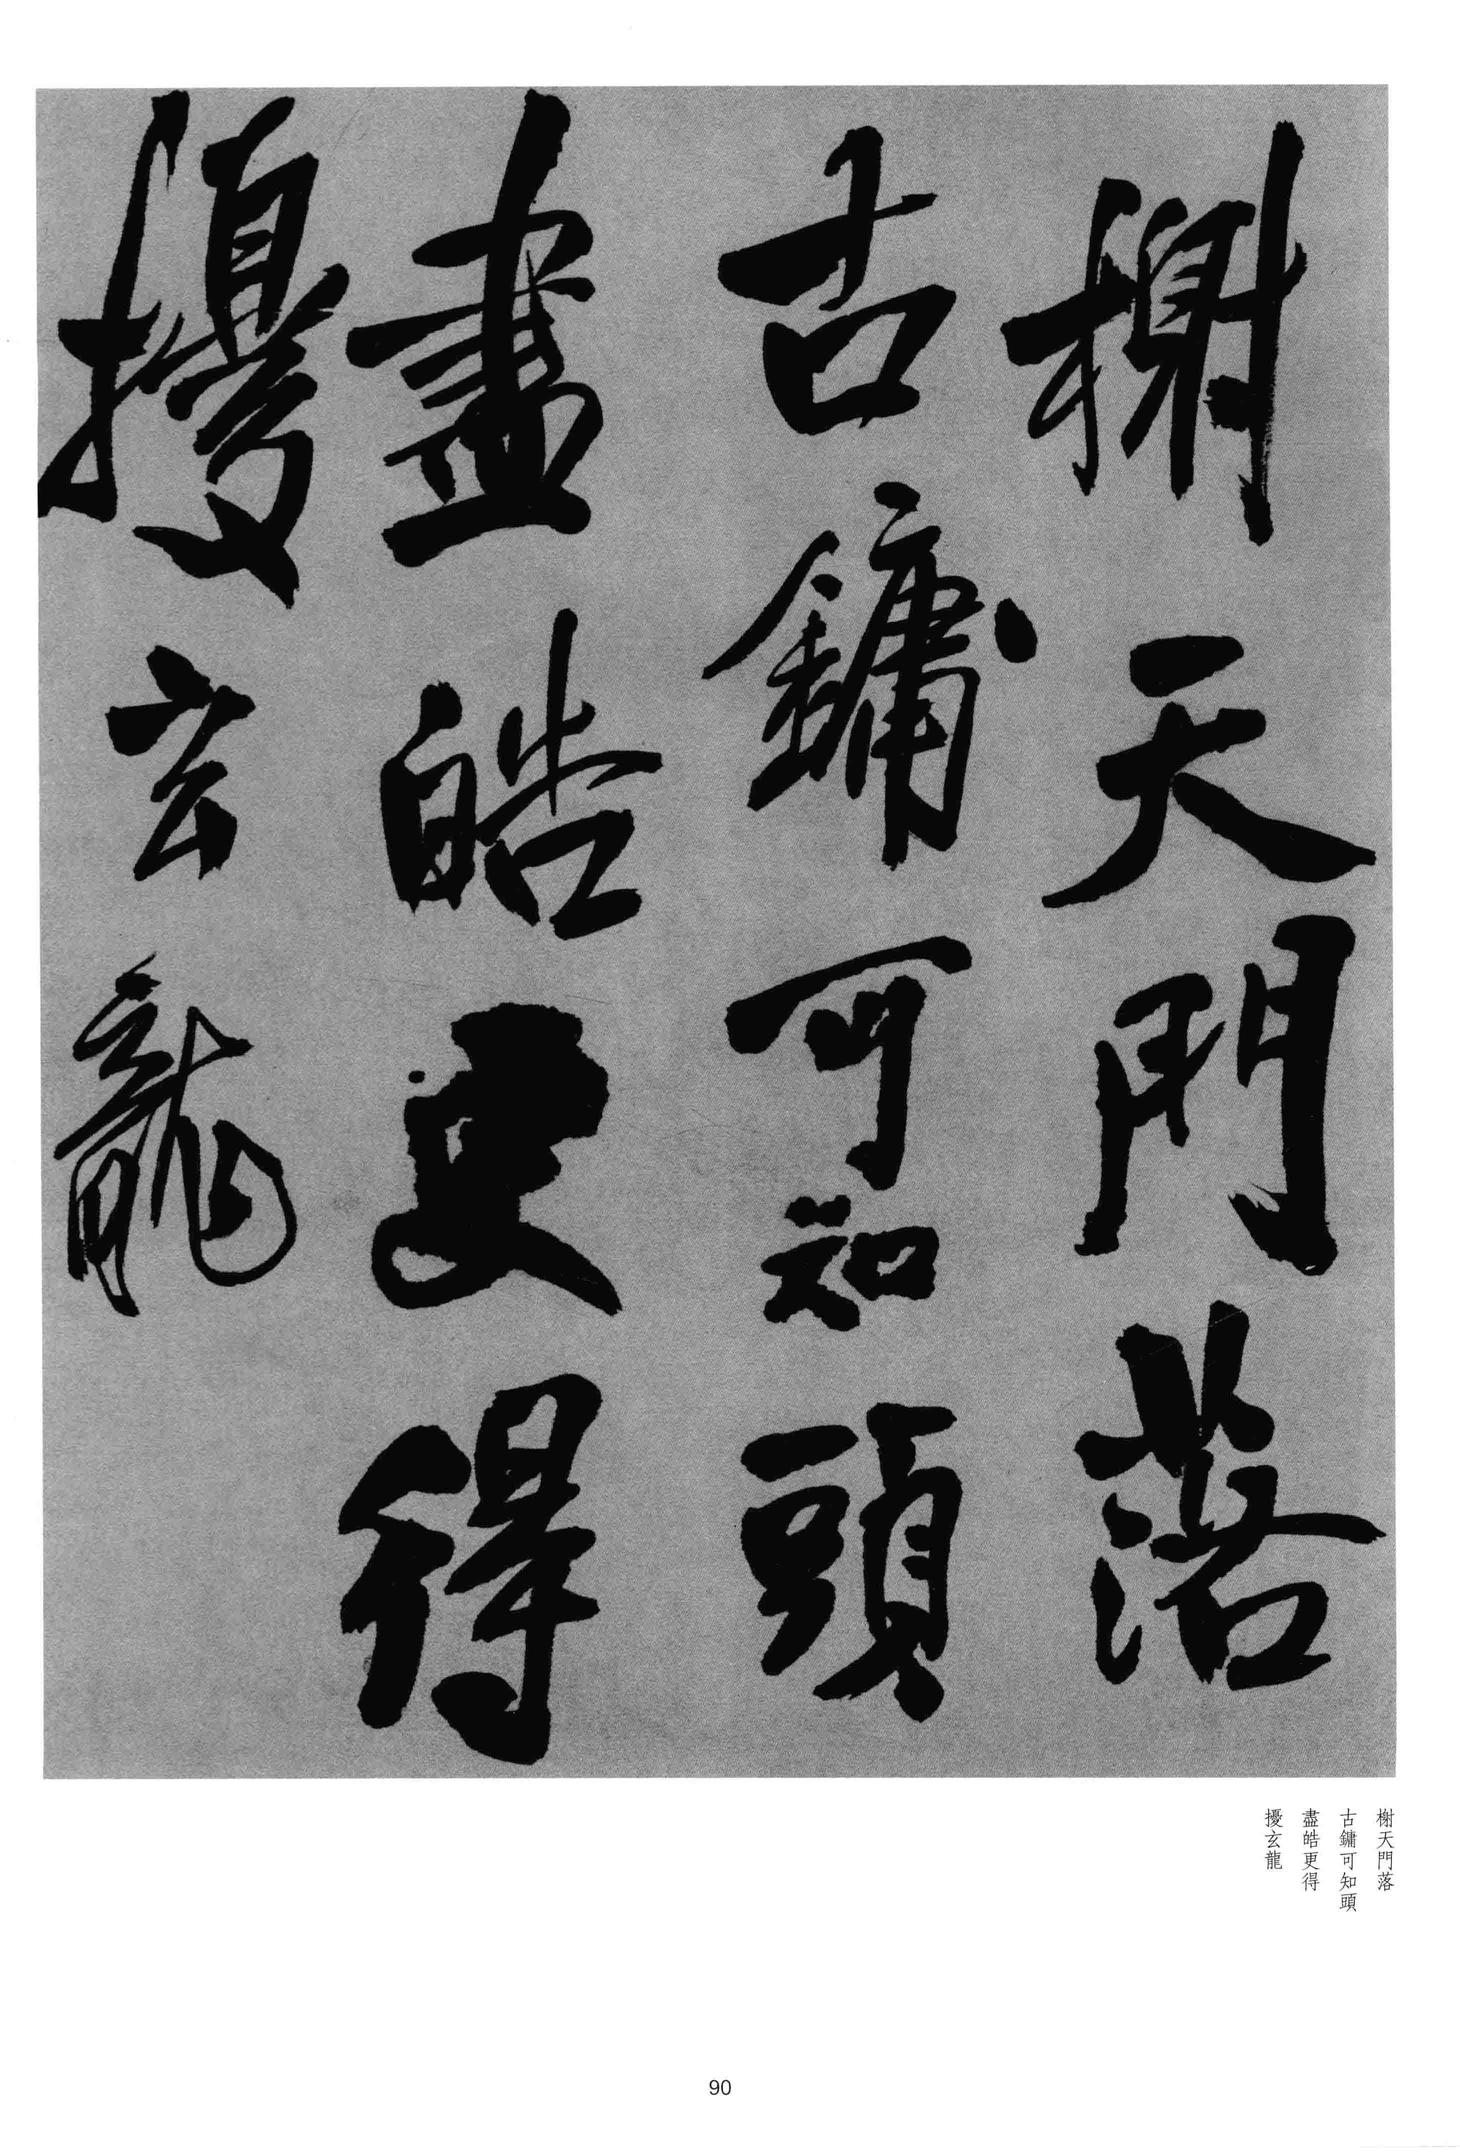 榭天門落
古鏞可知頭
盡皓更得
擾玄龍
榭天門落
古鏞可知頭
盡皓更得
擾玄龍
90